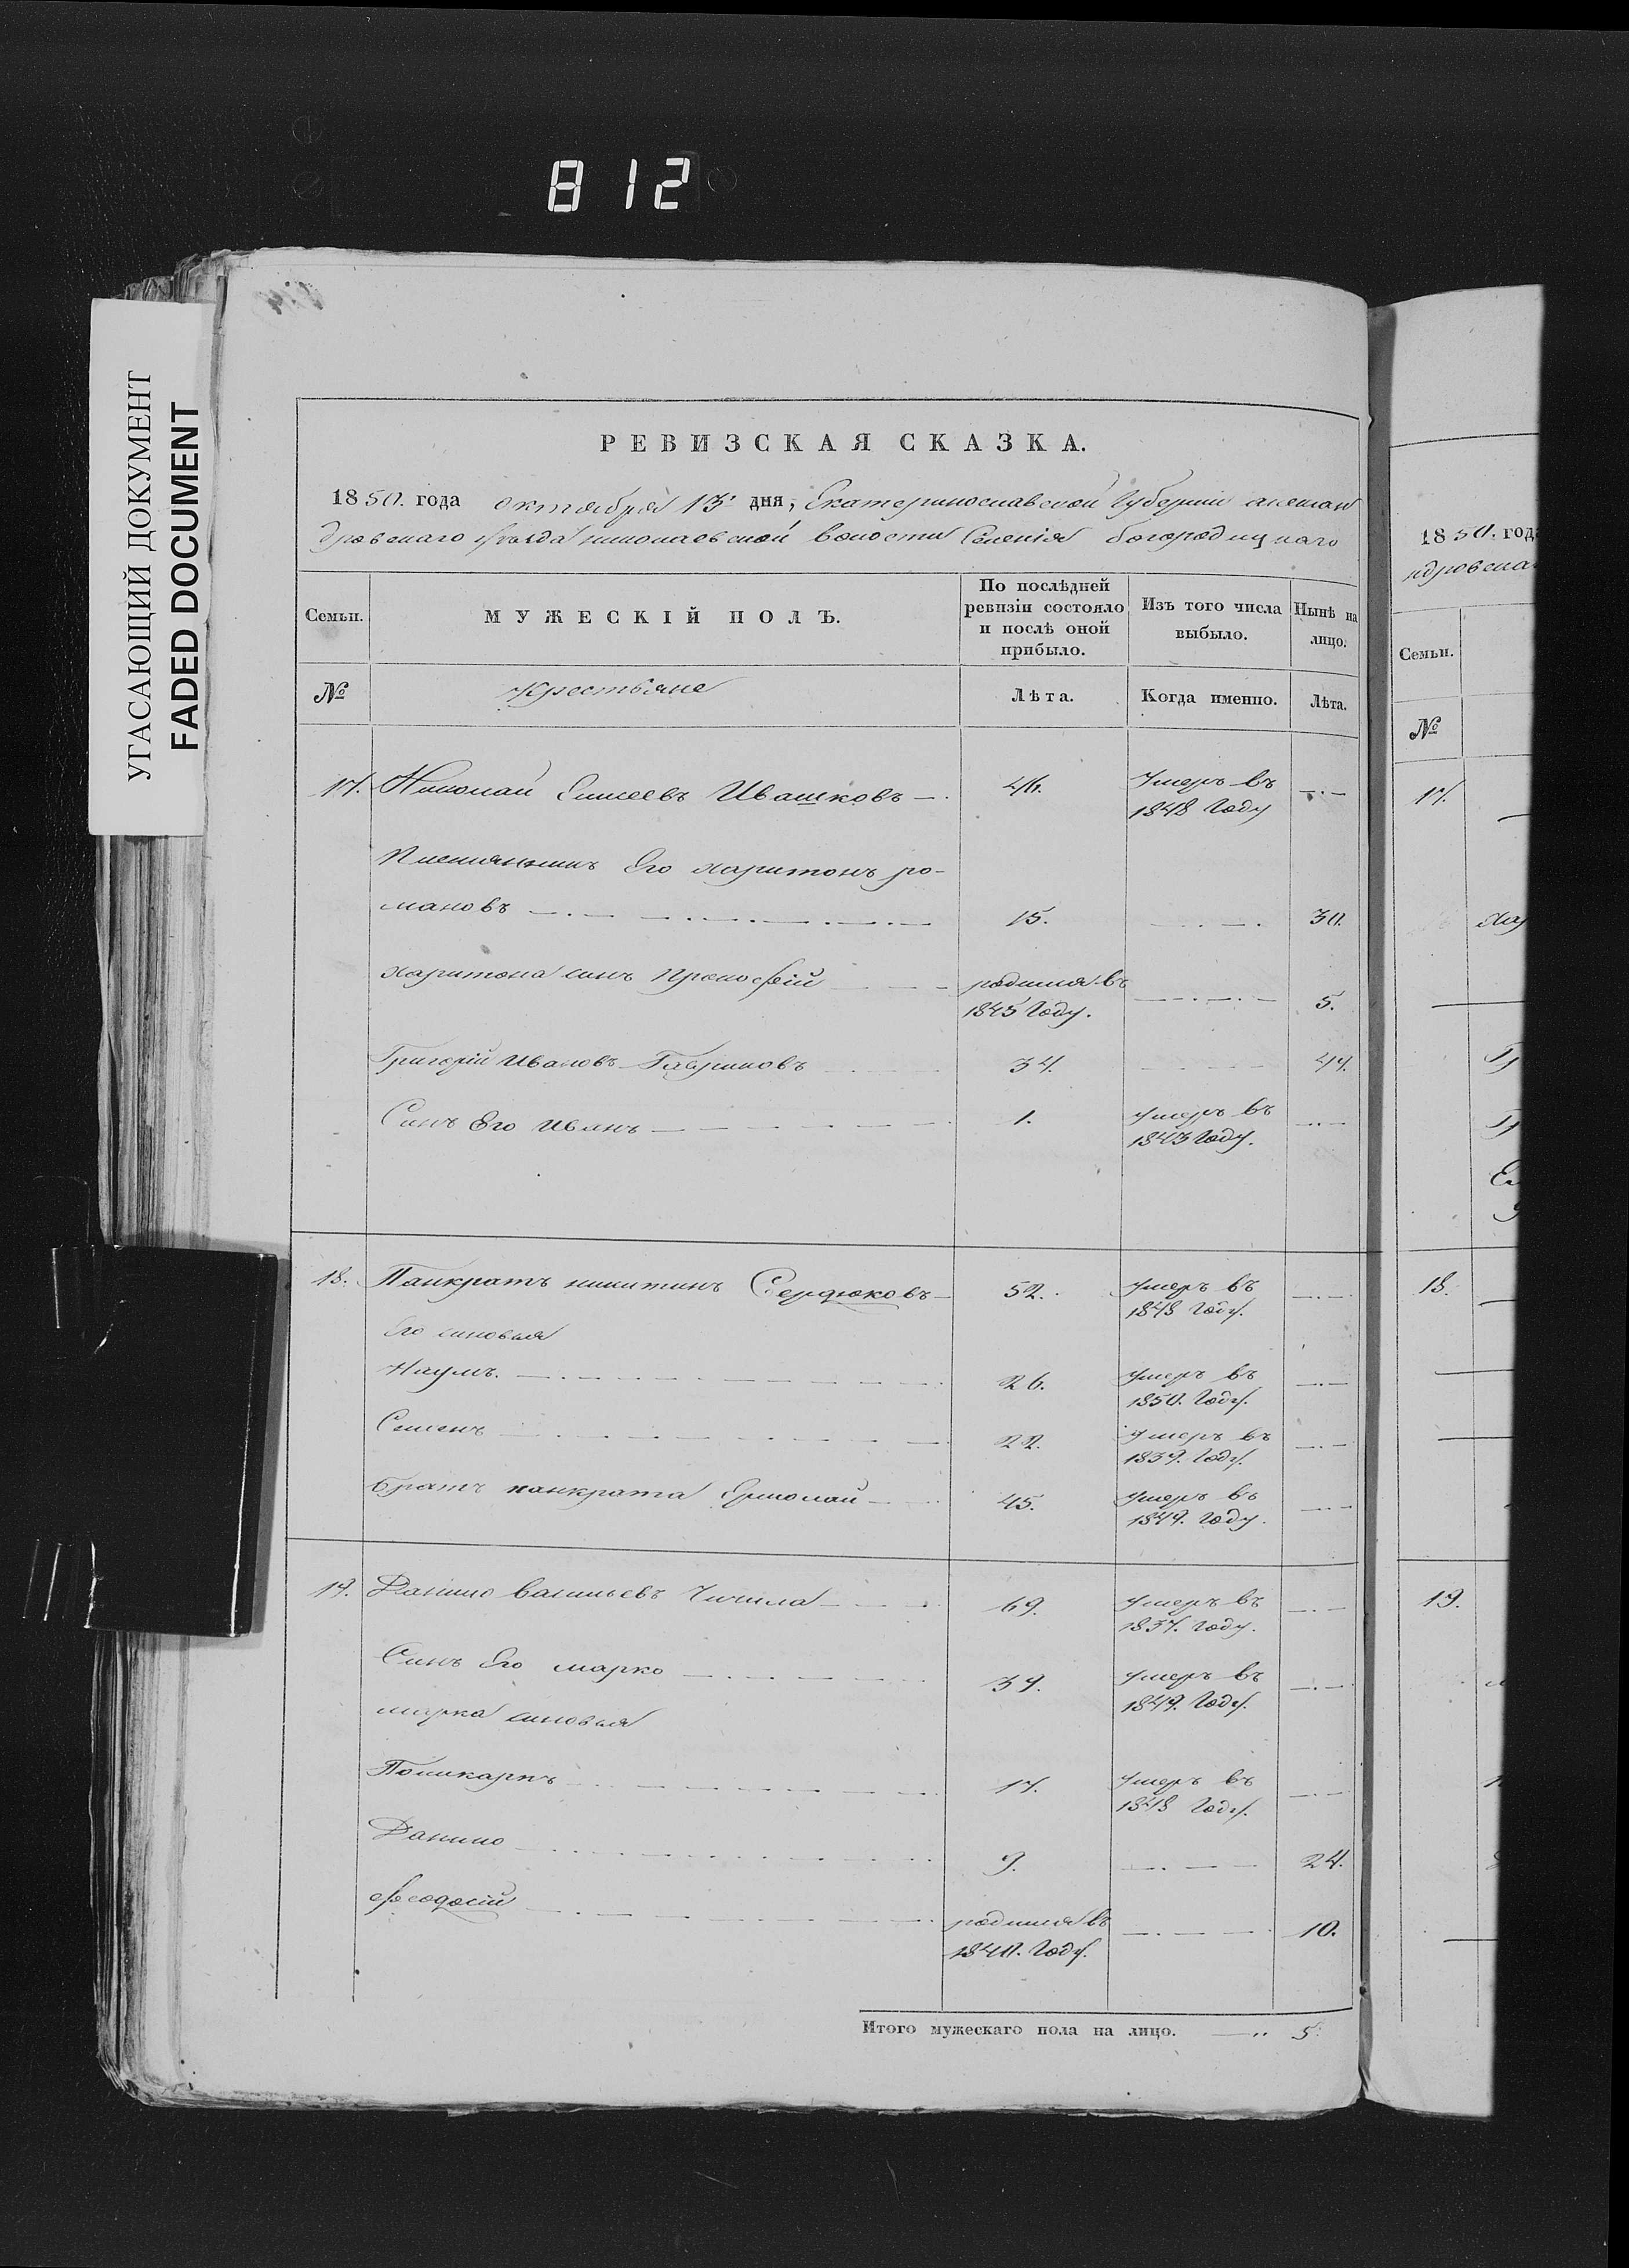 812
УГАСАЮЩИЙ ДОКУМЕНТ
FADED DOCUMENT
РЕВИЗСКАЯ СКАЗКА.
1850. года октября 13 дня, Екатеринославской Губернии александ
дровскаго уезда николаевской волости Селения богородицкаго
Семьи. МУЖЕСКІЙ ПОЛЪ. По послѣдней ревизіи состояло и послѣ оной прибыло. Изъ того числа выбыло. Нынѣ на лицо.
№ Крестьяне Лѣта. Когда именно. Лѣта.
17. Николай Елисеевъ Ивашковъ 46. Умеръ въ
1848 Году
Племянникъ Его харитонъ ро-
мановъ 15. 30.
харитона синъ Прокофей родился въ 5.
1845 Году.
Григорій Ивановъ Гавриковъ 34. 49.
Синъ Его Иванъ 1. умеръ въ
1843 Году.
18. Панкратъ никитинъ Сердюковъ 52. умеръ въ
1848 Году.
Его синовья
Наумъ. 26. умеръ въ
1850. Году.
Семенъ 22. умеръ въ
1839. Году.
Братъ панкрата Ермолай 45. умеръ въ
1849. Году.
19. Данило васильевъ Чичила 69. умеръ въ
1837. Году.
Синъ Его марко 39. умеръ въ
1849. Году.
марка синовья
Поликарпъ 17. умеръ въ
1848 Году.
Данило 9. 24.
Феодосій родился въ 10.
1840. Году.
Итого мужескаго пола на лицо. 5.
1850. год
ндровска
Семьи.
№
17.
хар
Гр
Гр
18.
19.